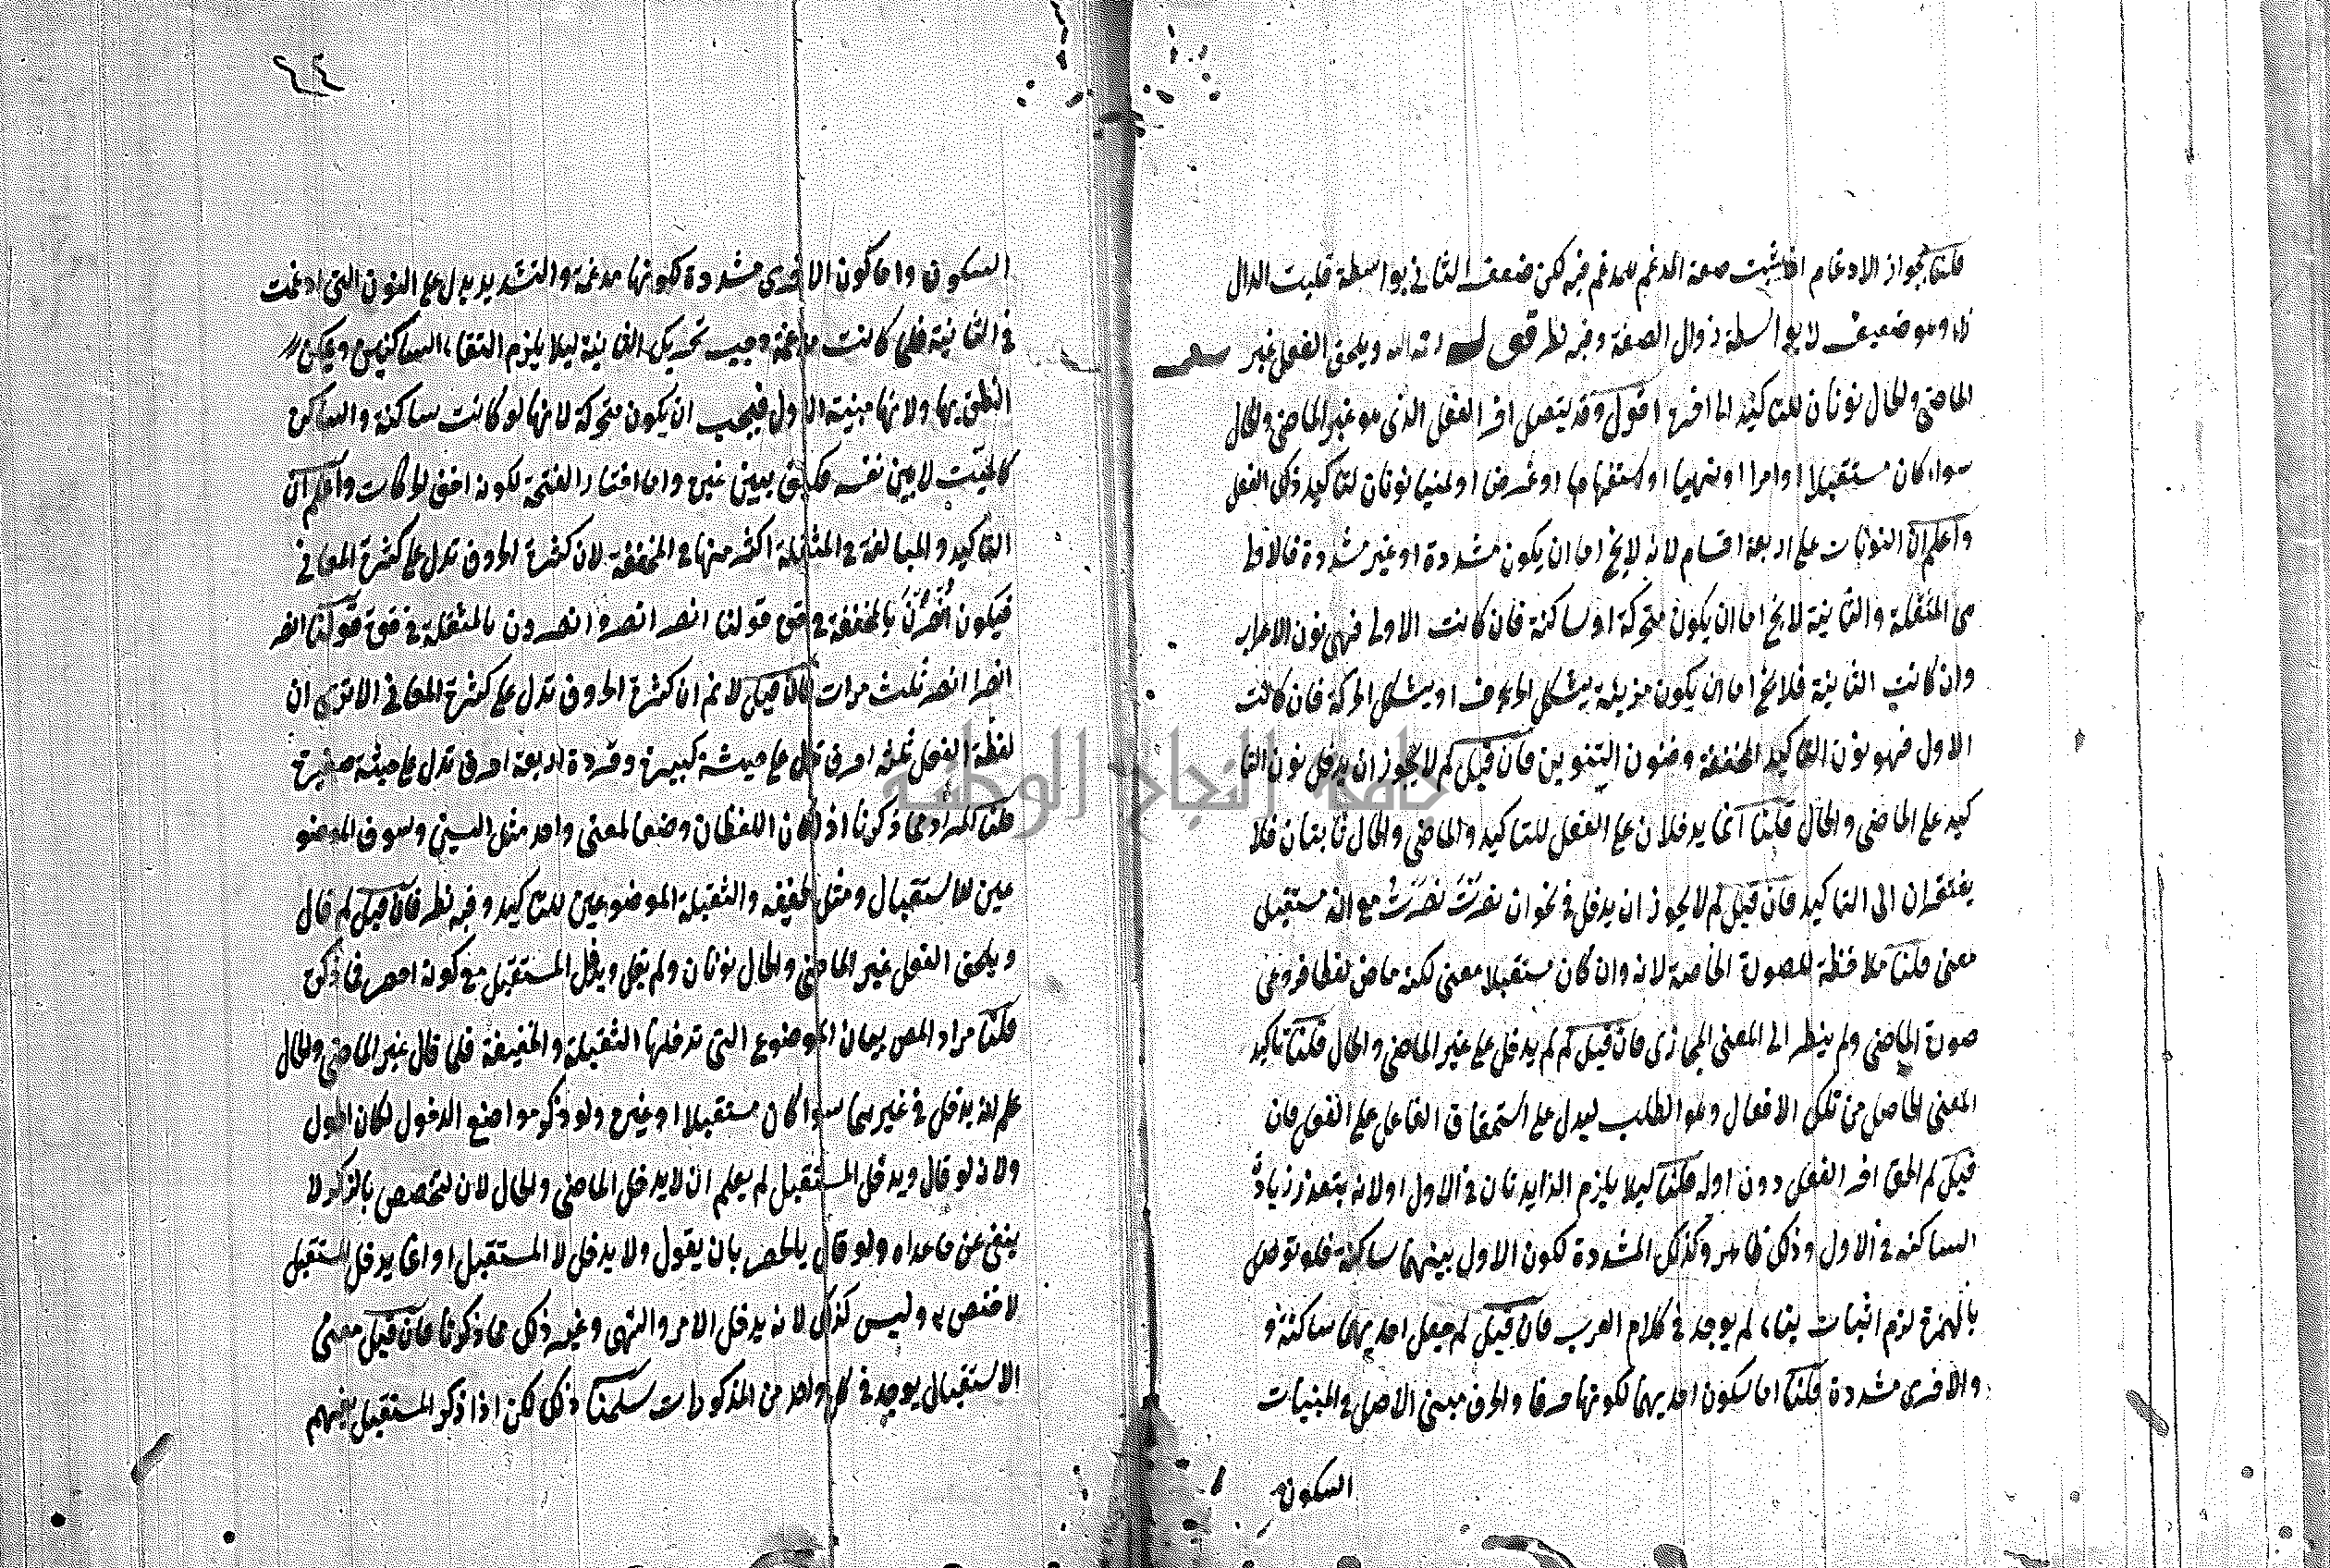 قلنا بجواز الادغام اذا ثبت صفة المدغم للمدغم فيه لكن ضعف الثاني بواسطة قلبت الدال
زاء وهو ضعيف لا بواسطة زوال الصفة وفيه نظر قوله رحمه الله ويلحق الفعل غير
الماضي والحال نونان للتاكيد الى اخره اقول وقد يتصل اخر الفعل الذي هو غير الماضي والحال
سواء كان مستقبلا او امرا او نهيا او استفهاما او عرضا او تمنيا نونان لتاكيد ذلك الفعل
واعلم ان النونات على اربعة اقسام لانه لا يخ اما ان يكون مشددة او غير مشددة فالاولى
هى المثقلة والثانية لا يخ اما ان يكون متحركة او ساكنة فان كانت الاولى فهى نون الاعراب
وان كانت الثانية فلا يخ اما ان يكون مزيئة بشكل الحرف او بشكل الحركة فان كانت
الاول فهو نون التاكيد المخففة وفنون التنوين فان قيل لم لا يجوز ان يدخل نون التا
كيد على الماضى والحال قلنا انما يدخلان على الفعل للتاكيد والماضي والحال ثابتان فلا
يفتقران الى التاكيد فان قيل لم لا يجوز ان يدخل في نحو ان نصرت نصرت مع انه مستقبل
معنى قلنا ملاحظة للصورة الخاصة لانه وان كان مستقبلا معنى لكنه ماض لفظا فروعى
صورة الماضي ولم ينظر الى المعنى المجازى فان قيل لم لم يدخل على غير الماضى والحال قلنا تاكيد
المعنى الحاصل من تلك الافعال وهو الطلب ليدل على استحقاق الفاعل على الفعل فان
قيل لم الحق اخر الفعل دون اوله قلنا ليلا يلزم الزايدتان في الاول او لانه يتعذر زيادة
الساكنه في الاول وذلك ظاهر وكذلك المشددة لكون الاول بينهما ساكنة فلو توصل
بالهمزة لزم اثبات بناء لم يوجد في كلام العرب فان قيل لم جعل احديهما ساكنة و
والاخرى مشددة قلنا اما سكون احديهما لكونها حرفا والحرف مبنى الاصل في المبنيات
السكون
٦٤
السكون واما كون الاخرى مشددة لكونها مدغمة والتشديد يدل على النون التى ادغمت
في الثانية فلما كانت مدغمة وجب تحريك الثانية ليلا يلزم التقاء الساكنين ويمكن
النطق بها ولانها مبنية الاول فيجب ان يكون متحركة لانها لو كانت ساكنة والساكن
كالميت لا يبين نفسه فكيف يبين غيره واما اختار الفتحة لكونه اخف الحركات واعلم ان
التاكيد والمبالغة في المثقلة اكثر منها في المخففة لان كثرة الحروف تدل على كثرة المعاني
فيكون انصرن بالمخففة في قوة قولنا انصر انصر وانصرون بالمثقلة في قوة قولنا انصر
انصر انصر ثلث مرات فان قيل لا نم ان كثرة الحروف تدل على كثرة المعاني الا ترى ان
لفظة الفعل ثلثه احرف تدل على ميثة كبيرة وقردة اربعة احرف تدل على ميثة صغيرة
قلنا المراد بما ذكرنا اذا كان اللفظان وضعا لمعنى واحد مثل السين وسوف الموضو
عين للاستقبال ومثل الخفيفه والثقيلة الموضوعين للتاكيد وفيه نظر فان قيل لم قال
ويلحق الفعل غير الماضى والحال نونان ولم يقل ويدخل المستقبل مع كونه احصر فما ذكره
قلنا مراد المص بيان الموضوع التى تدخلها الثقيلة والخفيفة فلما قال غير الماضى والحال
علم انه يدخل في غيرهما سوا كان مستقبلا او غيره ولو ذكر مواضع الدخول لكان اطول
ولانه لو قال ويدخل المستقبل لم يعلم ان لا يدخل الماضى والحال لان لتخصص بالذكر لا
ينفى عن ماعداه ولو قال بالحصر بان يقول ولا يدخل لا المستقبل او انما يدخل المستقبل
لاختص به وليس كذلك لانه يدخل الامر والنهى وغير ذلك مما ذكرنا فان قيل معنى
الاستقبال يوجد في كل واحد من المذكورات سلمنا ذلك لكن اذا ذكر المستقبل يفهم
جامعة النجاح الوطنية